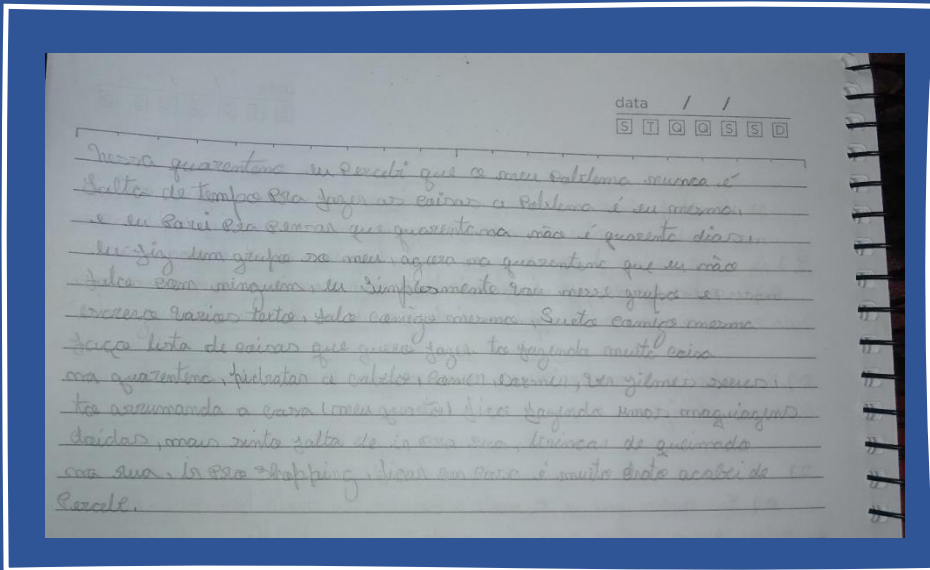 data / /
S T Q Q S S D
nessa quarentena eu Percebi que o meu Poblema nunca é
falta de tempo Pra fazer as coisas o Poblema é eu mesma,
e eu Parei Pra Pensar que quarentena não é quarenta dias
eu fiz um grupo so meu, agora na quarentena que eu não
falo com ninguem, eu simplesmente vou nesse grupo e
escrevo varios texto, falo comigo mesma, Surto comigo mesma
faço lista de coisas que quero fazer to fazendo muita coisa
na quarentena, hidratar o cabelo, comer, dormir, ver filmes
too arrumando a casa (meu quarto) fico fazendo umas maquiagens
doidas, mais sinto falta de ir pra rua, brincar de queimado
na rua, ir pro shopping, ficar em casa é muito chato acabei de
Percebe.